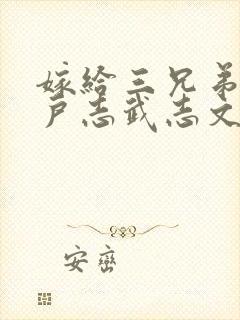 嫁给三兄弟
户志武志文
安峦